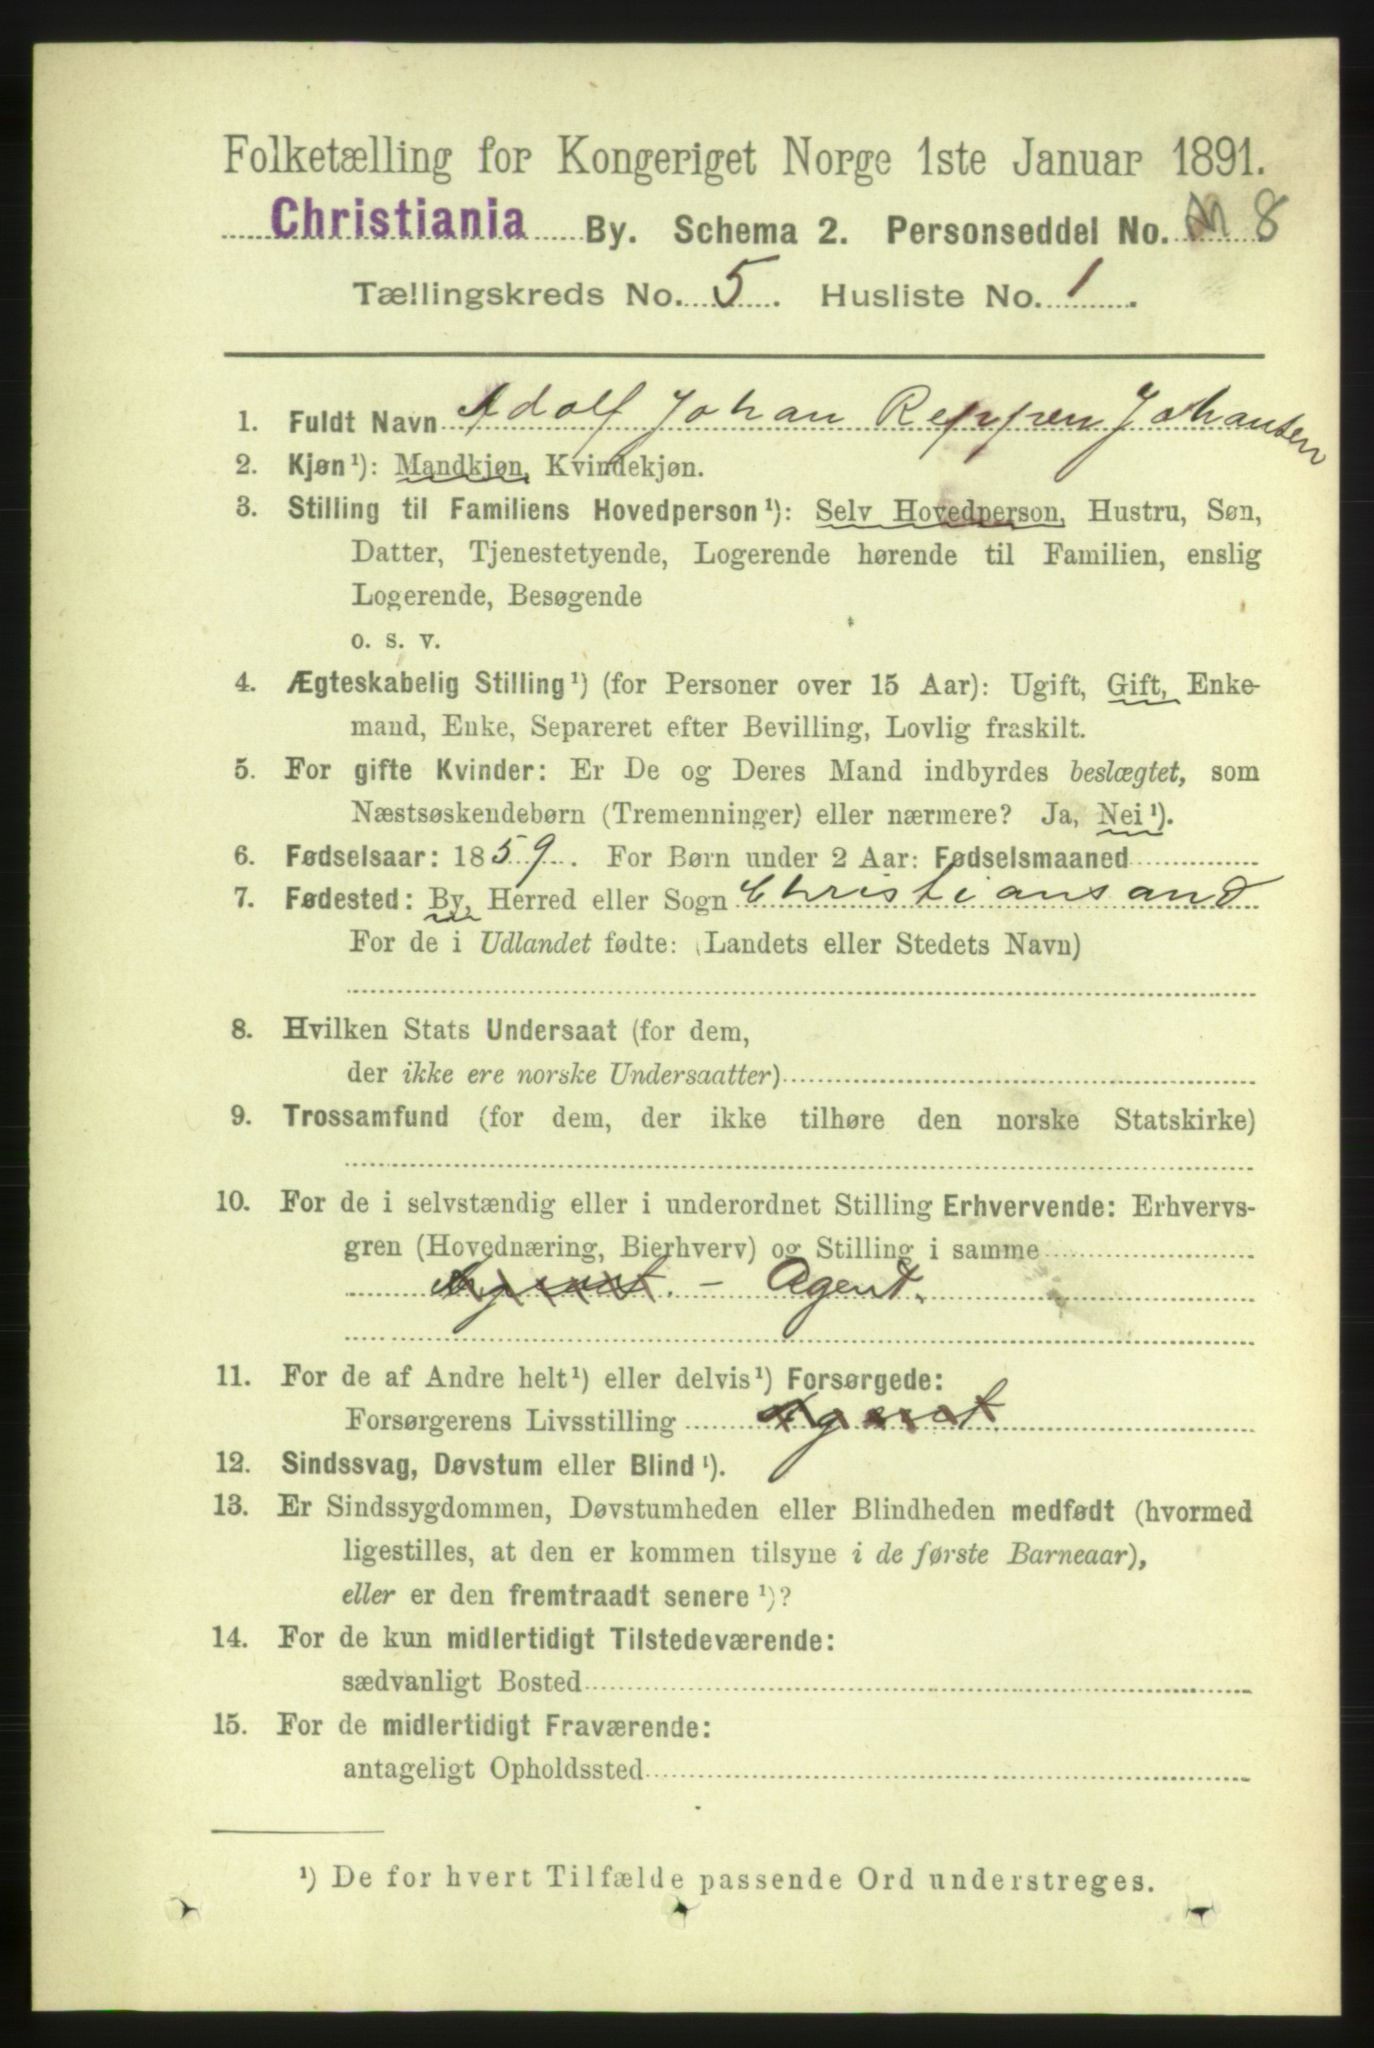 Folketælling for Kongeriget Norge 1ste Januar 1891.
Christiania By. Schema 2. Personseddel No. 8
Tællingskreds No. 5. Husliste No. 1.
1. Fuldt Navn Adolf Johan Reppen Johansen
2. Kjøn¹): Mandkjøn, Kvindekjøn.
3. Stilling til Familiens Hovedperson¹): Selv Hovedperson, Hustru, Søn,
Datter, Tjenestetyende, Logerende hørende til Familien, enslig
Logerende, Besøgende
o. s. v.
4. Ægteskabelig Stilling¹) (for Personer over 15 Aar): Ugift, Gift, Enke-
mand, Enke, Separeret efter Bevilling, Lovlig fraskilt.
5. For gifte Kvinder: Er De og Deres Mand indbyrdes beslægtet, som
Næstsøskendebørn (Tremenninger) eller nærmere? Ja, Nei¹).
6. Fødselsaar: 1859. For Børn under 2 Aar: Fødselsmaaned
7. Fødested: By, Herred eller Sogn Christiansand
For de i Udlandet fødte: (Landets eller Stedets Navn)
8. Hvilken Stats Undersaat (for dem,
der ikke ere norske Undersaatter)
9. Trossamfund (for dem, der ikke tilhøre den norske Statskirke)
10. For de i selvstændig eller i underordnet Stilling Erhvervende: Erhvervs-
gren (Hovednæring, Bierhverv) og Stilling i samme
Agent. - Agent.
11. For de af Andre helt¹) eller delvis¹) Forsørgede:
Forsørgerens Livsstilling Agent
12. Sindssvag, Døvstum eller Blind¹).
13. Er Sindssygdommen, Døvstumheden eller Blindheden medfødt (hvormed
ligestilles, at den er kommen tilsyne i de første Barneaar),
eller er den fremtraadt senere¹)?
14. For de kun midlertidigt Tilstedeværende:
sædvanligt Bosted
15. For de midlertidigt Fraværende:
antageligt Opholdssted
¹) De for hvert Tilfælde passende Ord understreges.